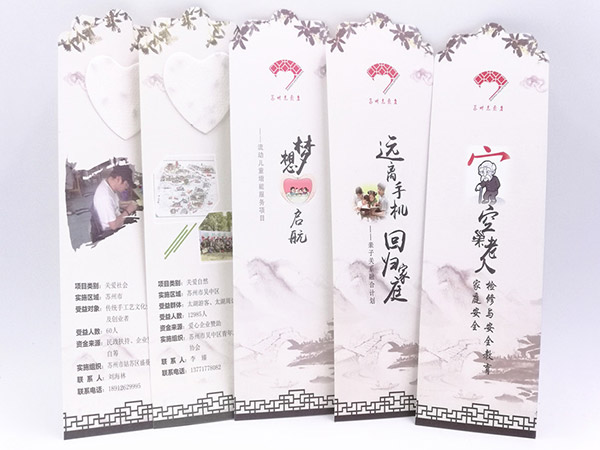 项目类别：关爱社会
实施区域：苏州市
受益对象：传统手工艺文化
及创业者
受益人数：60人
资金来源：民政扶持、企业
自筹
实施组织：苏州市姑苏区盛
联 系 人：刘海林
联系电话：18912629995
项目类别：关爱自然
实施区域：苏州市吴中区
受益群体：太湖游客、太湖周
受益人数：12985人
资金来源：爱心企业赞助
实施组织：苏州市吴中区青年
协会
联 系 人：李 臻
联系电话：13771778082
梦想
启航
——流动儿童增能服务项目
远离手机
回归家庭
——亲子关系融合计划
空巢老人
检修与安全教育
家庭安全